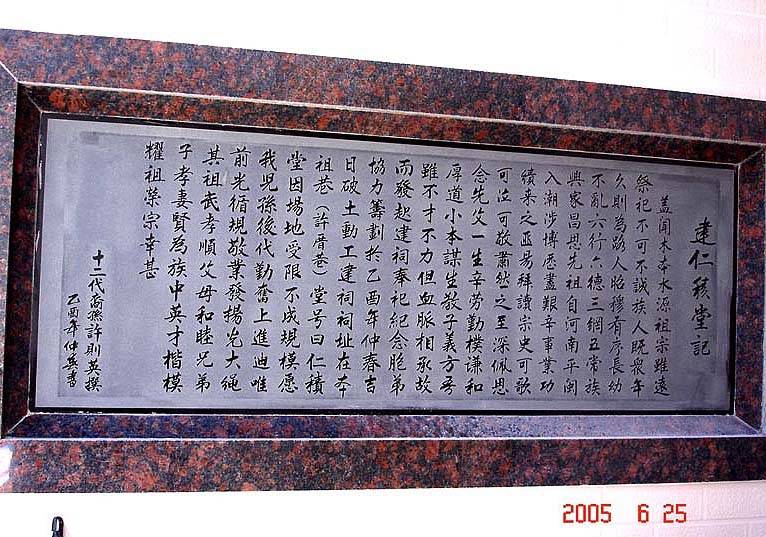 建仁積堂記
蓋聞木本水源祖宗雖遠
祭祀不可不誠族人既衆年
久則為路人昭穆有序長幼
不亂六行六德三綱五常族
興家昌思先祖自河南平閩
入潮涉博歷盡艱辛事業功
績来之匪易拜讀宗史可歌
可泣可敬肅然之至深佩思
念先父一生辛勞勤樸謙和
厚道小本謀生教子義方吾
雖不才不力但血脈相承故
而發起建祠奉祀紀念胞弟
協力籌劃於乙酉年仲春吉
日破土動工建祠祠址在本
祖巷（許厝巷）堂号曰仁積
堂因場地受限不成規模愿
我児孫後代勤奮上進迪唯
前光循規敬業發揚光大绳
其祖武孝順父母和睦兄弟
子孝妻賢為族中英才楷模
耀祖榮宗幸甚
十二代裔孫許則英撰
乙酉年仲英書
2005 6 25